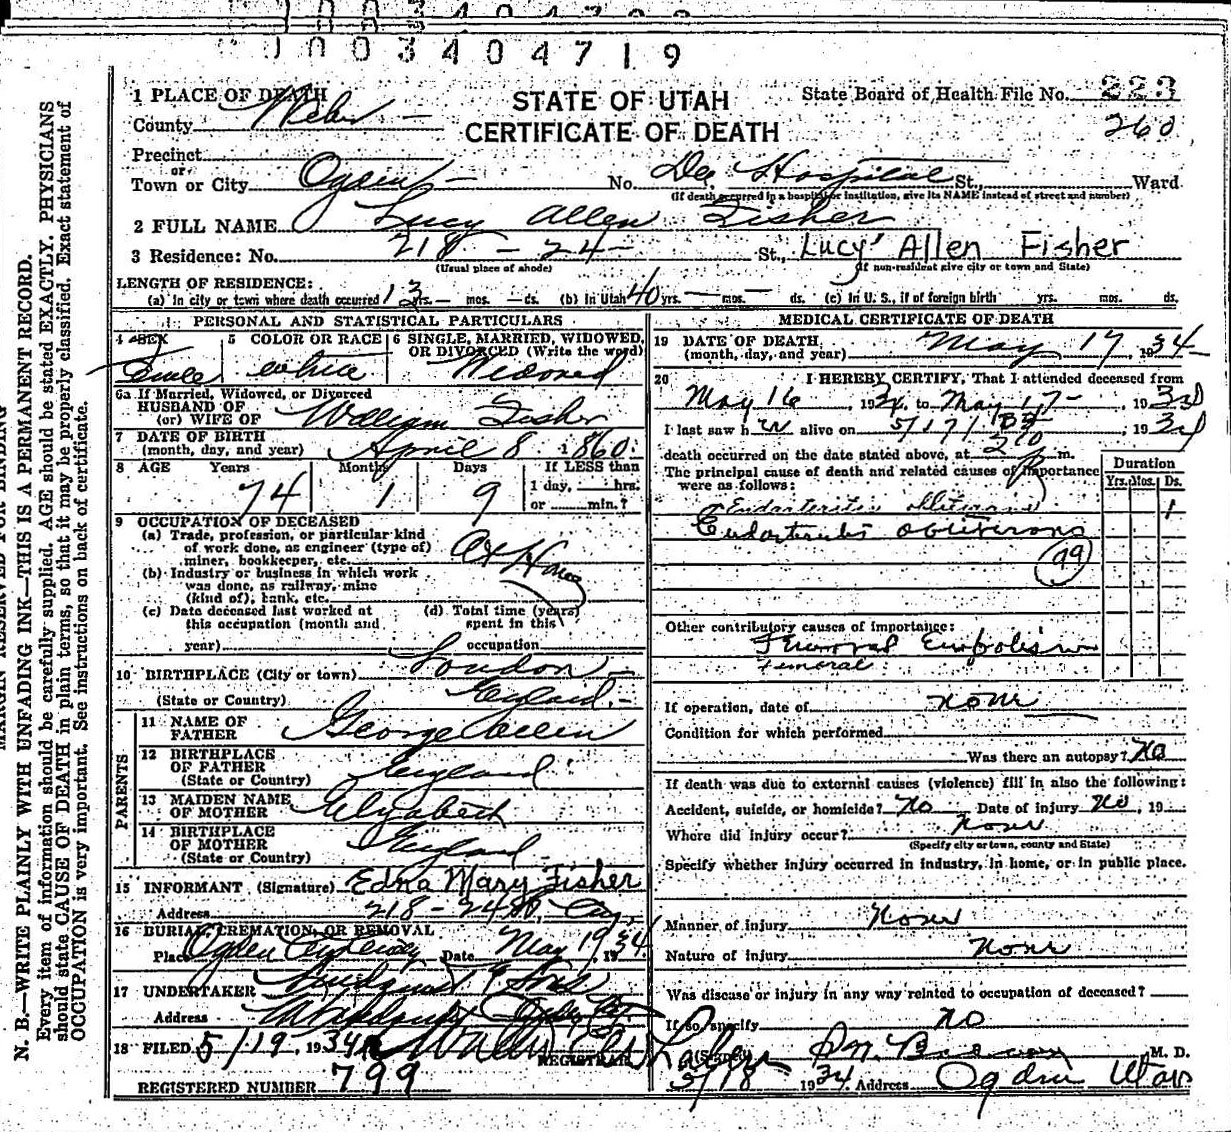 1003404719
1 PLACE OF DEATH
STATE OF UTAH
State Board of Health File No. 223
County Weber
CERTIFICATE OF DEATH
260
Precinct
or
Town or City Ogden
No. Dee Hospital St., Ward
(If death occurred in a hospital or institution, give its NAME instead of street and number)
2 FULL NAME Lucy Allen Fisher
3 Residence: No. 218 - 24 - St., Lucy Allen Fisher
(Usual place of abode) (If non-resident give city or town and State)
LENGTH OF RESIDENCE:
(a) In city or town where death occurred 13 yrs. — mos. — ds. (b) In Utah 40 yrs. — mos. — ds. (c) In U. S., if of foreign birth yrs. mos. ds.
PERSONAL AND STATISTICAL PARTICULARS
4 SEX 5 COLOR OR RACE 6 SINGLE, MARRIED, WIDOWED,
OR DIVORCED (Write the word)
white Widowed
6a If Married, Widowed, or Divorced
HUSBAND OF
(or) WIFE OF William Fisher
7 DATE OF BIRTH
(month, day, and year) April 8 1860
8 AGE Years Months Days If LESS than
1 day, hrs.
or min.?
74 1 9
9 OCCUPATION OF DECEASED
(a) Trade, profession, or particular kind
of work done, as engineer (type of)
miner, bookkeeper, etc. At Home
(b) Industry or business in which work
was done, as railway, mine
(kind of), bank, etc.
(c) Date deceased last worked at
this occupation (month and
year)
(d) Total time (years)
spent in this
occupation
10 BIRTHPLACE (City or town) London
(State or Country) England
PARENTS
11 NAME OF
FATHER George Allen
12 BIRTHPLACE
OF FATHER England
(State or Country)
13 MAIDEN NAME
OF MOTHER Elizabeth
14 BIRTHPLACE
OF MOTHER England
(State or Country)
15 INFORMANT (Signature) Edna Mary Fisher
Address 218 - 24 St.
16 BURIAL, CREMATION, OR REMOVAL
Place Ogden Cemetery Date May 19, 1934
17 UNDERTAKER & Sons
Address
18 FILED 5/19, 1934
REGISTRAR
REGISTERED NUMBER 799
MEDICAL CERTIFICATE OF DEATH
19 DATE OF DEATH
(month, day, and year) May 17, 1934
20 I HEREBY CERTIFY, That I attended deceased from
May 16, 1934, to May 17, 1934
I last saw her alive on 5/17/ 1934
death occurred on the date stated above, at 2 p m.
The principal cause of death and related causes of importance
were as follows:
Duration
Yrs. Mos. Ds.
Endarteritis obliterans 1
Endarteritis obliterans
99
Other contributory causes of importance:
Femoral Embolism
Femoral
If operation, date of none
Condition for which performed
Was there an autopsy? No
If death was due to external causes (violence) fill in also the following:
Accident, suicide, or homicide? No Date of injury No, 19
Where did injury occur? None
(Specify city or town, county and State)
Specify whether injury occurred in industry, in home, or in public place.
Manner of injury None
Nature of injury None
Was disease or injury in any way related to occupation of deceased?
If so, specify no
(Signed) M. D.
5/18 1934 Address Ogden Utah
MARGIN RESERVED FOR BINDING
N. B.—WRITE PLAINLY WITH UNFADING INK—THIS IS A PERMANENT RECORD.
Every item of information should be carefully supplied. AGE should be stated EXACTLY. PHYSICIANS
should state CAUSE OF DEATH in plain terms, so that it may be properly classified. Exact statement of
OCCUPATION is very important. See instructions on back of certificate.